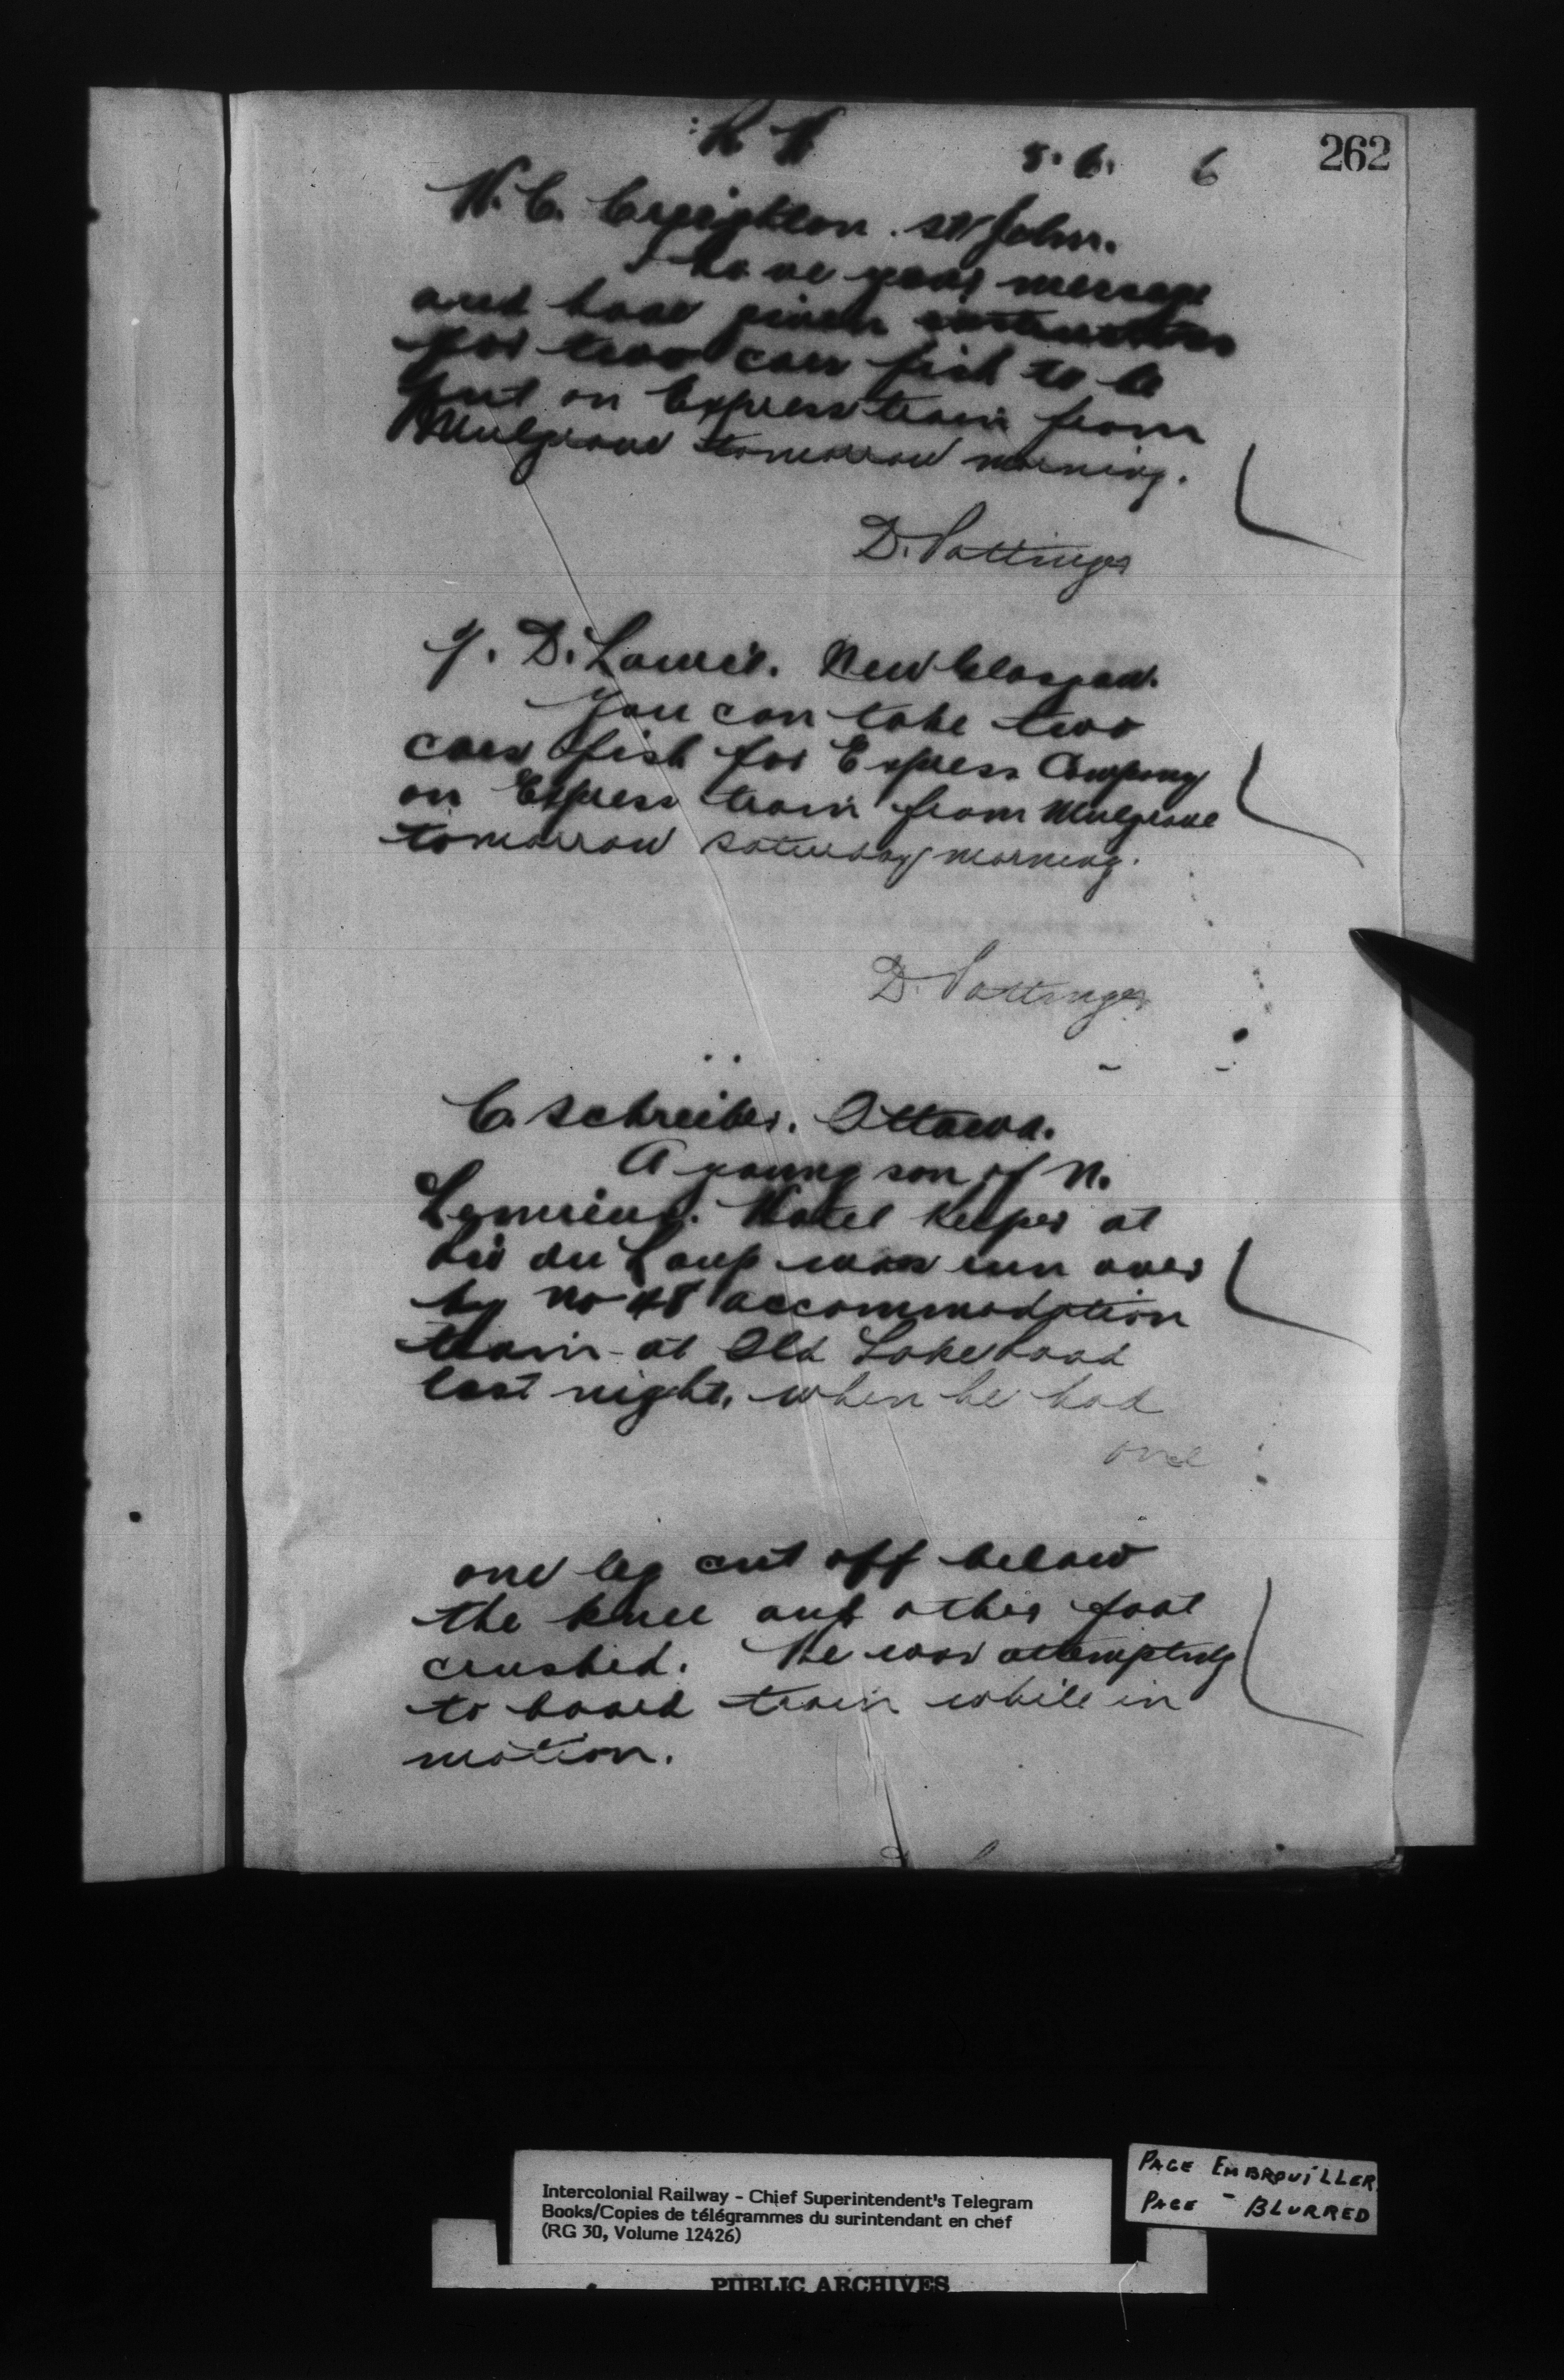 262
5. 6. 6
H. C. Creighton. St John.
I have your message
and have given instructions
for two cars fish to be
put on Express train from
Mulgrave tomorrow morning.
D. Pottinger
Y. D. Laurie. New Glasgow.
You can take two
cars fish for Express Company
on Express train from Mulgrave
tomorrow Saturday morning.
D. Pottinger
C. Schreiber. Ottawa.
A young son of N.
Hotel Keeper at
du Loup was run over
by No 48 accommodation
train at Old Lake Road
last night, when he had
one
one leg cut off below
the knee and other foot
crushed. He was attempting
to board train while in
motion.
Intercolonial Railway - Chief Superintendent's Telegram
Books/Copies de télégrammes du surintendant en chef
(RG 30, Volume 12426)
PAGE EMBROUILLER
PAGE - BLURRED
PUBLIC ARCHIVES